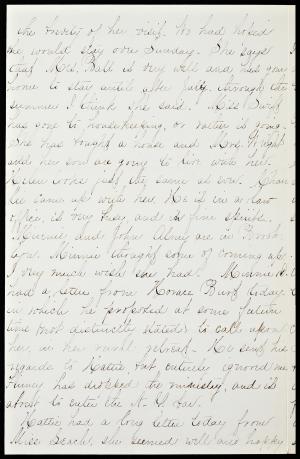 the brevity of her visit. We had hoped
she would stay over Sunday. She says
that Mrs. Bell is very well and has gone
home to stay until after July, through the
summer I think she said. Miss
has gone to housekeeping, or rather is going.
She has bought a house and Mrs. Wright
and her son are going to live with her.
Helen looks just the same as ever. Char-
lie came up with her. He is in a law
office, is very busy and in fine spirits.
Minnie and John are in Brook-
lyn. Minnie thought some of coming up.
I very much wish she had. Minnie B.
had a letter from Horace Burt today
in which he proposed at some future
time (not distinctly stated) to call upon
her, in her rural retreat. He sent his
regards to Hattie, but entirely ignored me
has dropped the ministry, and is
about to enter the N. Y. Bar.
Hattie had a long letter today from
Miss Leach, she seemed well and happy